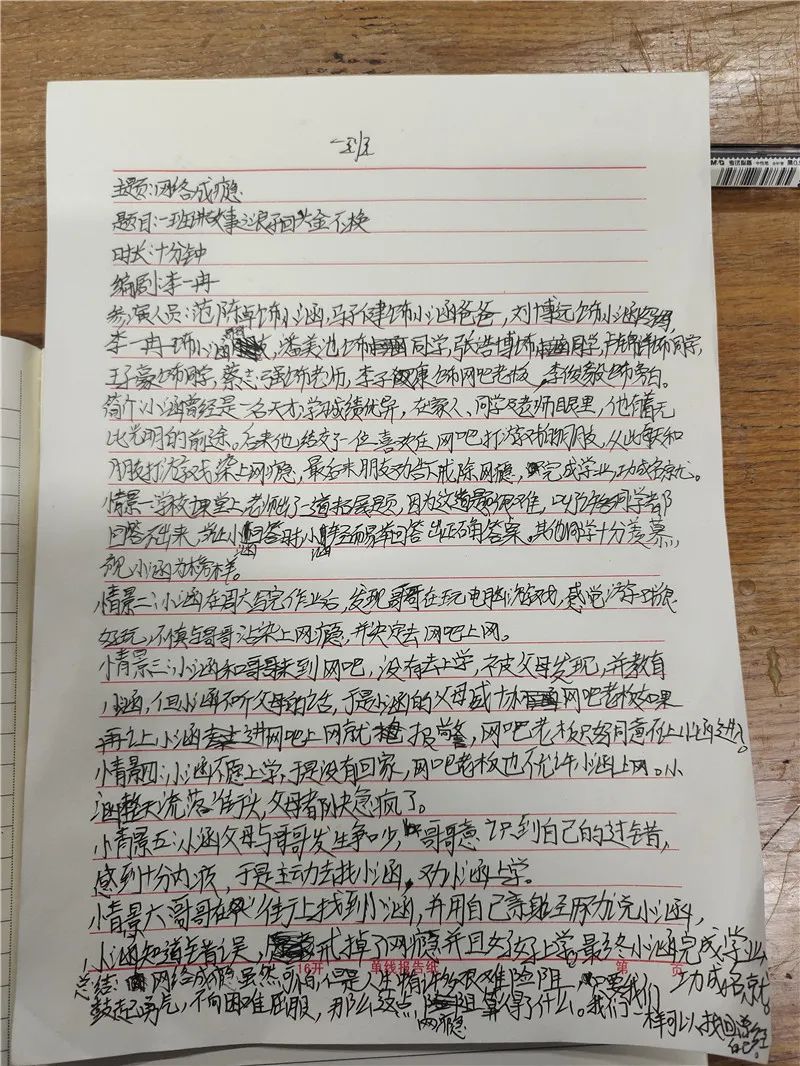 一班
主题:网络成瘾
题目:一班讲故事之浪子回头金不换
时长:十分钟
编剧:李一冉
参演人员:范陈卓饰小涵,马子健饰小涵爸爸,刘博远饰小涵妈妈,
李一冉饰小涵 潘美池饰同学,张浩博饰同学,卢锦涛饰同学,
王子豪饰同学,蔡志强饰老师,李子康饰网吧老板,李俊毅饰旁白。
简介:小涵曾经是一名天才,学习成绩优异,在家人、同学及老师眼里,他有着无
比光明的前途。后来他结交了一位喜欢在网吧打游戏的朋友,从此每天和
朋友打游戏染上网瘾,最后来朋友劝告戒除网瘾,完成学业,功成名就。
情景一:学校课堂上老师出了一道拓展题,因为这道题很难,叫几位同学都
回答不出来,当让小涵回答时小涵轻而易举回答出正确答案。其他同学十分羡慕,
视小涵为榜样。
情景二:小涵在周六写完作业后,发现哥哥在玩电脑游戏,感觉游戏很
好玩,不慎与哥哥沾染上网瘾,并决定去网吧上网。
情景三:小涵和哥哥来到网吧,没有去上学,被父母发现,并教育
小涵,但小涵不听父母的话,于是小涵的父母威胁网吧老板如果
再让小涵进网吧上网就报警,网吧老板只好同意不让小涵进入。
情景四:小涵不愿上学,于是没有回家,网吧老板也不允许小涵上网。小
涵整天流落街头,父母都快急疯了。
情景五:小涵父母与哥哥发生争吵,哥哥意识到自己的过错,
感到十分内疚,于是主动去找小涵,劝小涵上学。
情景六:哥哥在街上找到小涵,并用自己亲身经历劝说小涵,
小涵知道错误,戒掉了网瘾并且好好上学。最终小涵完成学业
功成名就。
16开 单线报告纸 第 页
总结:网络成瘾虽然可怕,但是人生有许多艰难险阻,只要我们
鼓起勇气,不向困难屈服,那么这点网瘾算得了什么。我们一样可以找回
自己